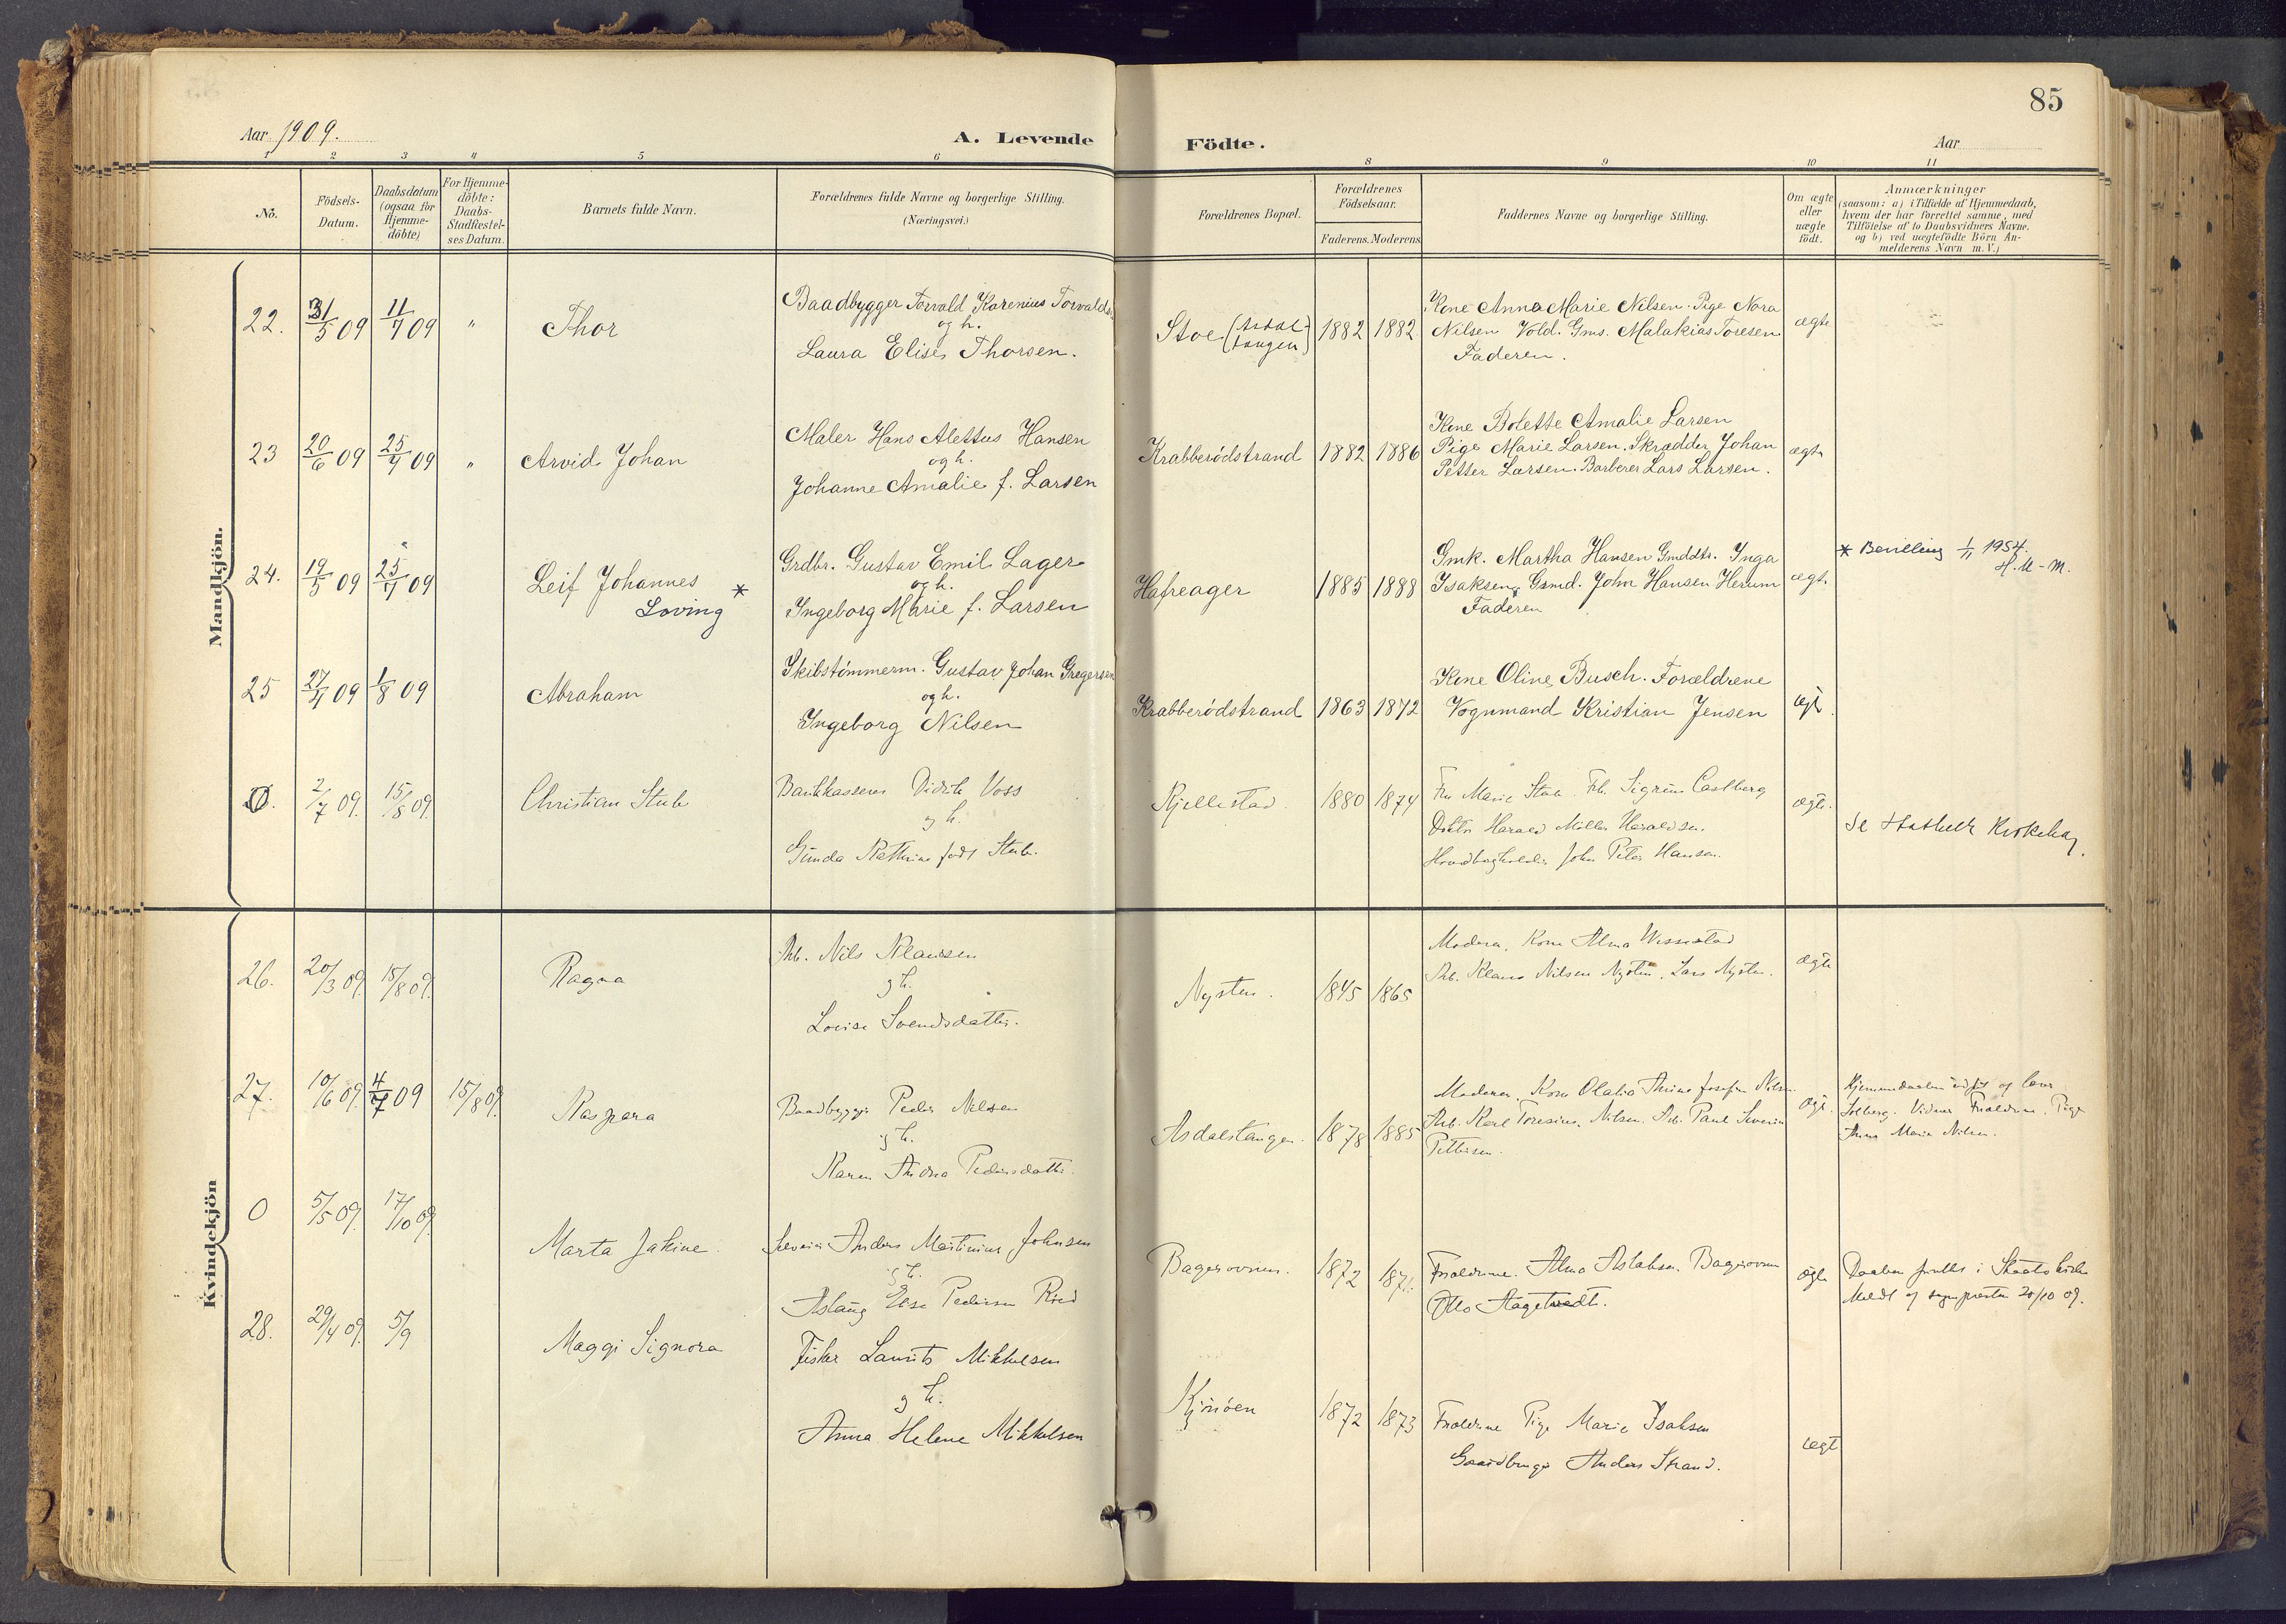 85
Aar 1909.
A. Levende
Födte.
Aar
1 2 3 4 5 6 8 9 10 11
No.
Födsels-
Datum.
Daabsdatum
(ogsaa for
Hjemme-
döbte)
For Hjemme-
döbte:
Daabs-
Stadfæstel-
ses Datum.
Barnets fulde Navn.
Forældrenes fulde Navne og borgerlige Stilling.
(Næringsvei.)
Forældrenes Bopæl.
Forældrenes
Födselsaar.
Faderens. Moderens
Faddernes Navne og borgerlige Stilling.
Om ægte
eller
uægte
födt.
Anmærkninger
(saasom: a) i Tilfælde af Hjemmedaab,
hvem der har forrettet samme, med
Tilföielse af to Daabsvidners Navne,
og b) ved uægtefödte Börn An-
melderens Navn m. V.)
Mandkjön.
22. 31/5 09 11/7 09 "
Thor
Baadbygger Torvald Karenius Torvaldsen
og h.
Laura Elise Thorsen.
Stoe (Asdal-
tangen)
1882 1882
Kone Anna Marie Nilsen. Pige Nora
Nilsen Vold. Gms. Malakias Toresen
Faderen.
ægte
23 20/6 09 25/7 09 "
Arvid Johan
Maler Hans Alettus Hansen
og h.
Johanne Amalie f. Larsen
Krabberödstrand
1882 1886
Kone Bolette Amalie Larsen
Pige Marie Larsen. Skrædder Johan
Petter Larsen. Barberer Lars Larsen.
ægte
24. 19/5 09 25/7 09
Leif Johannes
Loving *
Grdbr. Gustav Emil Lager
og h.
Ingeborg Marie f. Larsen
Hafreager
1885 1888
Gmk. Martha Hansen Gmddtr. Inga
Isaksen, Grmd. John Hansen Herum
Faderen
ægte
* Bevilling 1/11 1954.
25 27/4 09 1/8 09
Abraham
Skibstömmerm. Gustav Johan Gregersen
og h.
Ingeborg Nilsen
Krabberödstrand
1863 1872
Kone Oline Busch. Forældrene
Vognmand Kristian Jensen
ægte
0. 2/7 09. 15/8 09.
Christian Stub
Bankkasserer Didrik Voss
og h.
Gunda Kathrine født Stub.
Kjellestad.
1880 1874
Fru Marie Stub. Frk. Sigrun Castberg
Doktor Harald Møller Haraldsen.
Hovedbogholder John Peter Hansen.
ægte.
Se Stathelle Kirkebog.
Kvindekjön
26. 20/3 09. 15/8 09.
Ragna
Arb. Nils Klausen
og h.
Lovise Svendsdatter.
Nysten.
1845 1865
Moderen, Kone Alma
Arb. Klaus Nilsen Nysten, Lars Nysten.
ægte
27. 10/6 09. 4/7 09 15/8 09.
Kaspara
Baadbygger Peder Nilsen
og h.
Karen Andrea Pedersdatter.
Asdalstangen.
1878 1885
Moderen, Kone Olalia Thrine Josefine Nilsen.
Arb. Karl Toresius Nilsen. Arb. Paul Severin
Pettersen.
ægte.
Hjemmedaaben udført af
Solberg. Vidner Forældrene. Pige
Anna Marie Nilsen.
0 5/5 09. 17/10 09.
Marta Jakine.
Anders Martinius Johnsen
og h.
Aslaug Elise Pedersen
Bagerovnen.
1872 1871.
Forældrene. Alma Aslaksen, Bagerovnen
Otto Aagetvedt.
ægte
Daaben forrettet i Skaatø kirke
Meldt af sognepresten 20/10 09.
28. 29/4 09. 5/9
Maggi Signora
Fisker Laurits Mikkelsen
og h.
Anna Helene Mikkelsen
Kjönöen
1872 1873
Forældrene Pige Marie Isaksen
Gaardbruger Anders Strand.
ægte